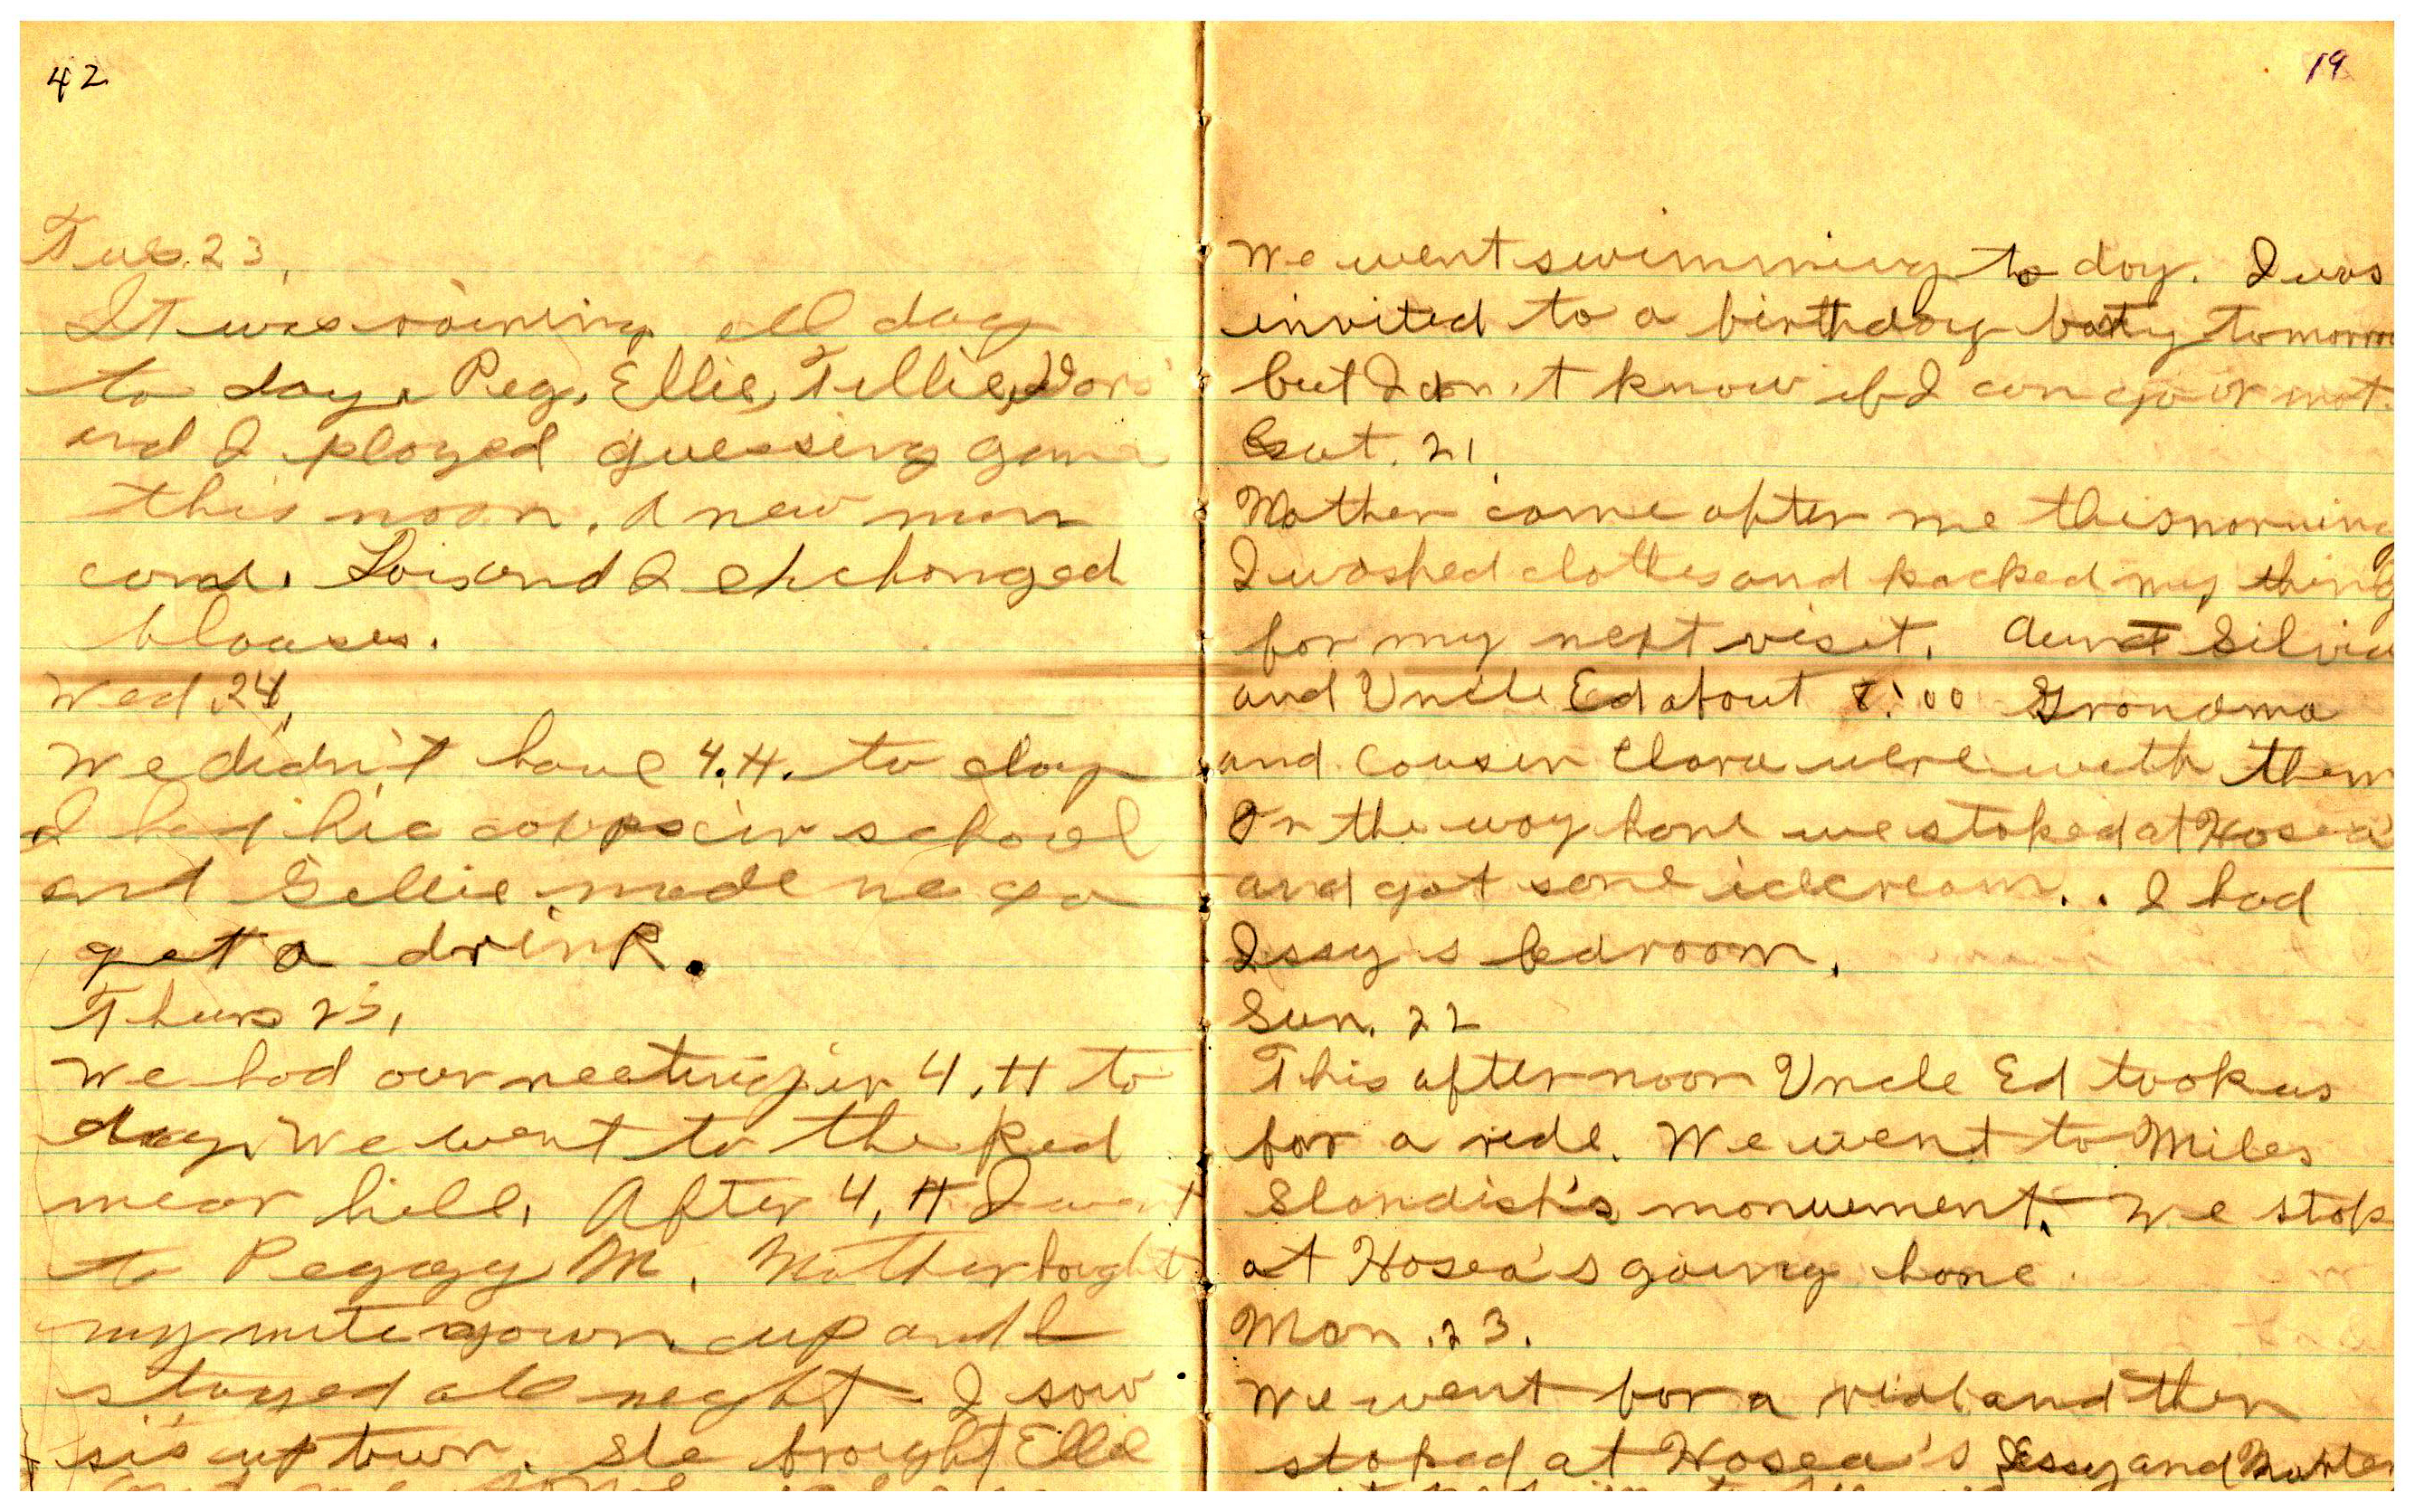 42
Tues. 23,
It was raining all day
to day. Peg, Ellie, Tillie, Doris
and I played guessing game
this noon. A new man
come. Lois and I exchanged
blouses.
Wed. 24,
We didn't have 4.H. to day
I had hic coups in school
and Tillie made me go
get a drink.
Thurs 25,
We had our meeting in 4.H to
day. We went to the Red
mear hill. After 4.H I went
to Peggy M. Mother bought
my nite gown up and I
stayed all neght. I sow
sis up town. She brought Ellie
19
We went swimming to day. I was
invited to a birthday party tomorrow
but I don't know if I can go or not.
Sat. 21
Mother came after me this morning
I washed clothes and packed my things
for my next visit. Aunt Silvia
and Uncle Ed about 8:00 Grandma
and Cousin Clara were with them
On the way home we stoped at Hosea's
and got some icecream.. I had
Issy's bedroom.
Sun. 22
This afternoon Uncle Ed took us
for a ride. We went to Miles
Standish's monument. We stop
at Hosea's going home.
Mon. 23.
We went for a ride and then
stoped at Hosea's Issy and